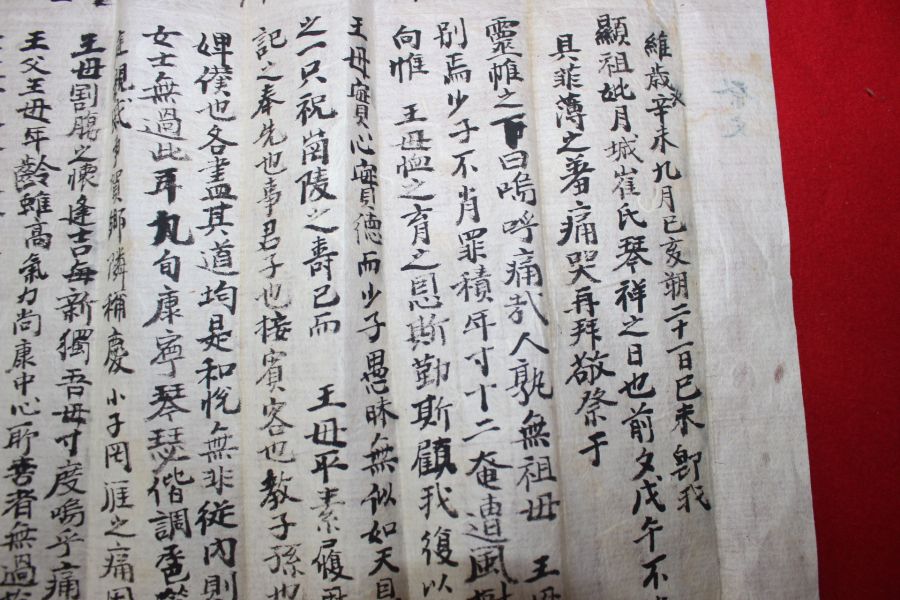 維歲次辛未九月己亥朔二十一日己未卽我
顯祖妣月城崔氏琴祥之日也前夕戊午不
具菲薄之羞痛哭再拜敬祭于
靈帷之下曰嗚呼痛哉人孰無祖母 王
別焉少子不肖罪積年寸十二奄遭風
向惟 王母恤之育之恩斯勤斯顧我復以
王母實心實德而少子愚昧無似如天
之一只祝茼陵之壽已而 王母平素履
記之奉先也事君子也接賓客也教子孫也
婢僕也各盡其道均是和悅無非從內則
女士無過此耳九旬康寧琴瑟偕調
賀鄉隣稱慶小子罔涯之痛
王母割腸之懷逢吉每新獨吾母寸度嗚乎痛
王父王母年齡雖高氣力尚康中心所善者無過
祭文